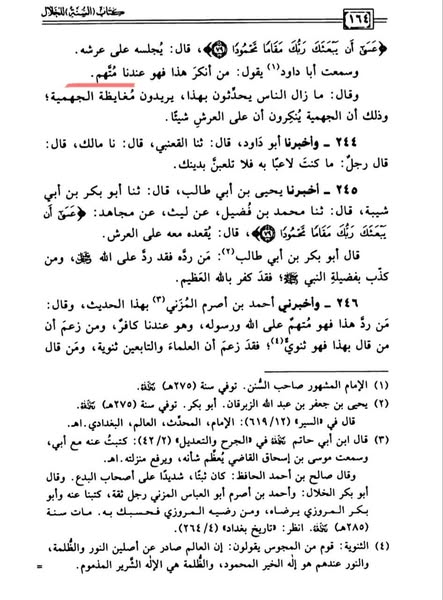 ١٦٤
كتاب (السنة) للخلال
﴿عَسَىٰ أَن يَبْعَثَكَ رَبُّكَ مَقَامًا مَّحْمُودًا ٧٩﴾، قال: يُجلسه على عرشه.
وسمعت أبا داود(١) يقول: من أنكرَ هذا فهو عندنا مُتَّهم.
وقال: ما زال الناس يحدِّثون بهذا، يريدون مُغايظة الجهمية؛
وذلك أن الجهمية يُنكِرون أن على العرشِ شيئًا.
٢٤٤ ـ وأخبرنا أبو دَاود، قال: ثنا القعنبي، قال: نا مالك، قال:
قال رجلٌ: ما كنتَ لاعبًا به فلا تلعبنَّ بدينك.
٢٤٥ ـ أخبرنا يحيى بن أبي طالب، قال: ثنا أبو بكر بن أبي
شيبة، قال: ثنا محمد بن فُضيل، عن ليث، عن مجاهد: ﴿عَسَىٰ أَن
يَبْعَثَكَ رَبُّكَ مَقَامًا مَّحْمُودًا ٧٩﴾، قال: يُقعده معه على العرش.
قال أبو بكر بن أبي طالب(٢): مَن ردَّه فقد ردَّ على الله ﷺ، ومن
كذّب بفضيلةِ النبي ﷺ؛ فقدَ كفر بالله العَظيم.
٢٤٦ ـ وأخبرني أحمد بن أصرم المُزَني(٣) بهذا الحديث، وقال:
مَن ردَّ هذا فهو مُتهمٌ على الله ورسوله، وهو عندنا كافرٌ، ومن زعمَ أن
من قال بهذا فهو ثنويٌّ(٤)؛ فقد زعمَ أن العلماءَ والتابعين ثنوية، ومَن قال
(١) الإمام المشهور صاحب السُّنن. توفي سنة (٢٧٥هـ) .
(٢) يحيى بن جعفر بن عبد الله الزبرقان. أبو بكر. توفي سنة (٢٧٥هـ) .
قال في «السير» (٦١٩/١٢): الإمام، المحدّث، العالم، البغدادي.اهـ.
(٣) قال ابن أبي حاتم في «الجرح والتعديل» (٤٢/٢): كتبتُ عنه مع أبي،
وسمعت موسى بن إسحاق القاضي يُعظِّم شأنه، ويرفع منزلته.اهـ.
وقال صالح بن أحمد الحافظ: كان ثبتًا، شديدًا على أصحاب البدع. وقال
أبو بكر الخلال: وأحمد بن أصرم أبو العباس المزني رجل ثقة، كتبنا عنه وأبو
بكر المروزي يرضاه، ومن رضيه المروزي فحسبك به. مات سنة
(٢٨٥هـ). انظر: «تاريخ بغداد» (٢٦٤/٤).
(٤) الثنوية: قوم من المجوس يقولون: إن العالم صادر عن أصلين النور والظُّلمة،
والنور عندهم هو إله الخير المحمود، والظُّلمة هي الإله الشَّرير المذموم. =